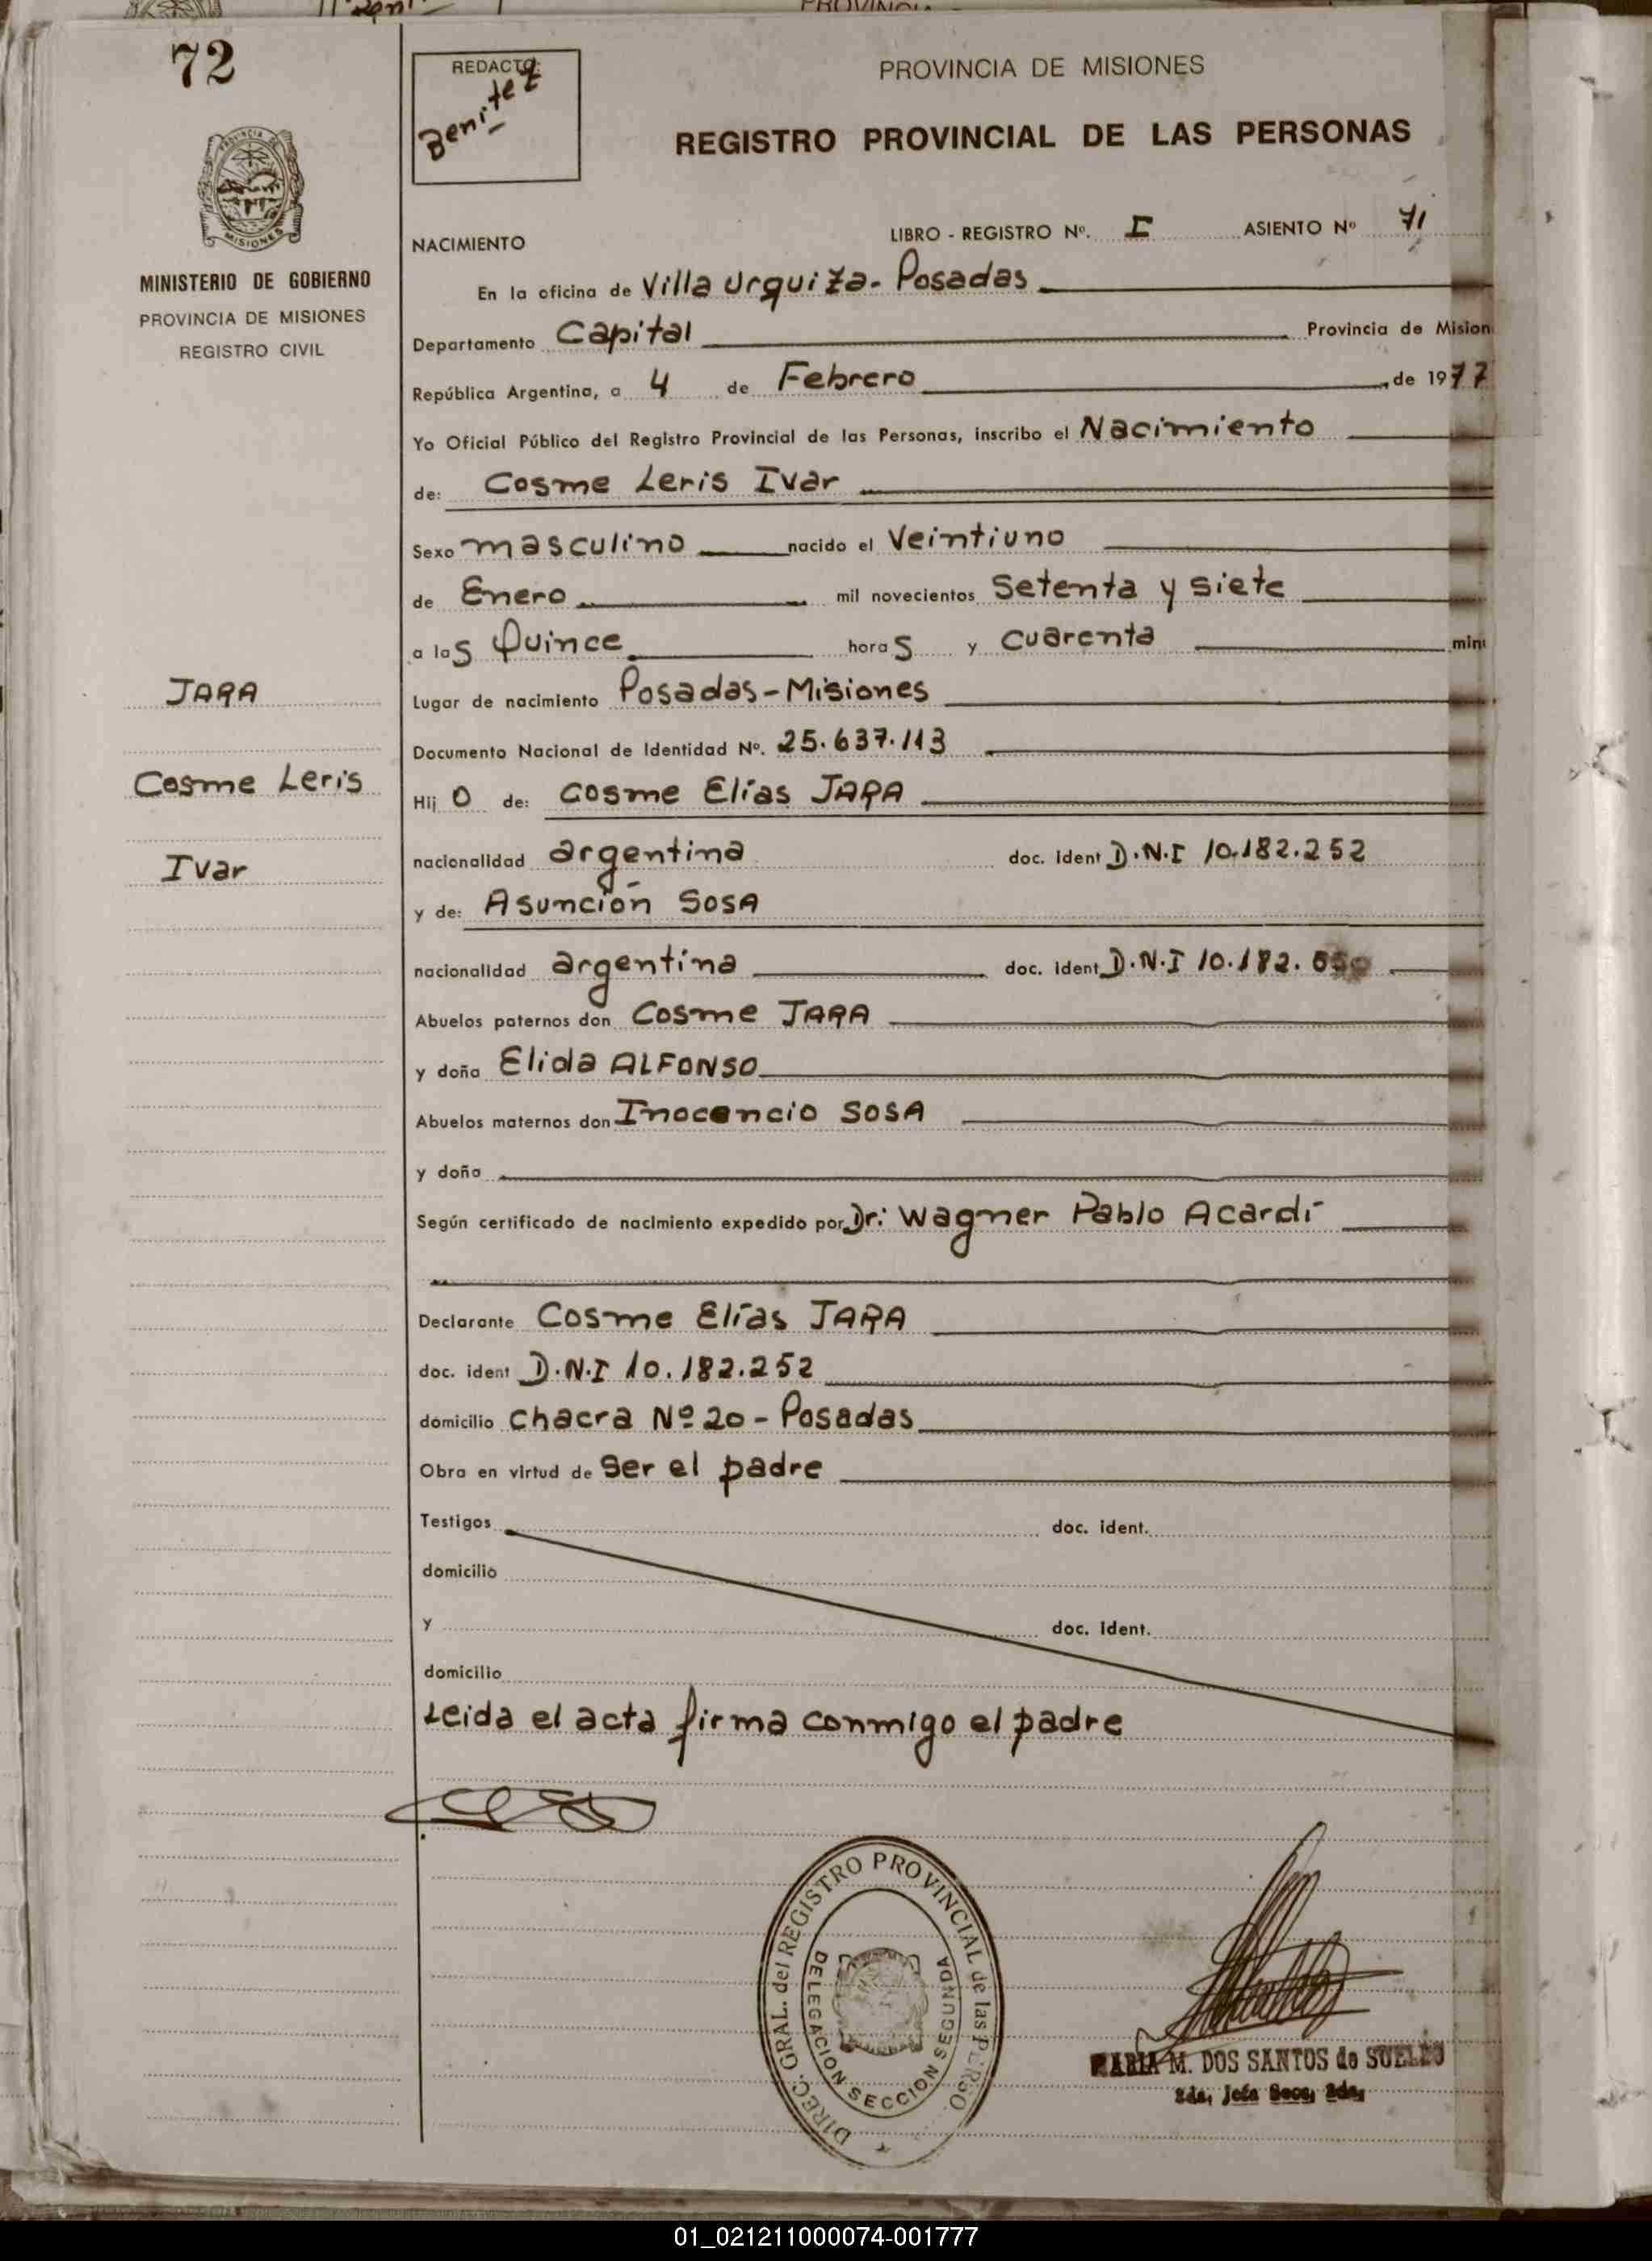 72
REDACTO:
Benitez
PROVINCIA DE MISIONES
REGISTRO PROVINCIAL DE LAS PERSONAS
MISIONES
MINISTERIO DE GOBIERNO
PROVINCIA DE MISIONES
REGISTRO CIVIL
NACIMIENTO
LIBRO - REGISTRO Nº. I ASIENTO Nº 71
En la oficina de Villa Urquiza - Posadas
Departamento Capital Provincia de Mision
República Argentina, a 4 de Febrero de 1977
Yo Oficial Público del Registro Provincial de las Personas, inscribo el Nacimiento
de: Cosme Leris Ivar
Sexo masculino nacido el Veintiuno
de Enero mil novecientos Setenta y siete
a las Quince horas y cuarenta min
JARA
Lugar de nacimiento Posadas - Misiones
Documento Nacional de Identidad Nº. 25.637.113
Cosme Leris
Hijo de: Cosme Elías JARA
Ivar
nacionalidad argentina doc. ident D.N.I 10.182.252
y de: Asunción SOSA
nacionalidad argentina doc. ident D.N.I 10.182.
Abuelos paternos don Cosme JARA
y doña Elida ALFONSO
Abuelos maternos don Inocencio SOSA
y doña
Según certificado de nacimiento expedido por Dr: Wagner Pablo Acardi
Declarante Cosme Elías JARA
doc. ident D.N.I 10.182.252
domicilio chacra Nº 20 - Posadas
Obra en virtud de Ser el padre
Testigos doc. ident.
domicilio
y doc. ident.
domicilio
Leida el acta firma conmigo el padre
DIREC. GRAL. del REGISTRO PROVINCIAL de las PERSO.
DELEGACION SECCION SEGUNDA
MARIA M. DOS SANTOS de SUELDO
2da. Jefa Secc. 2da.
01_021211000074-001777